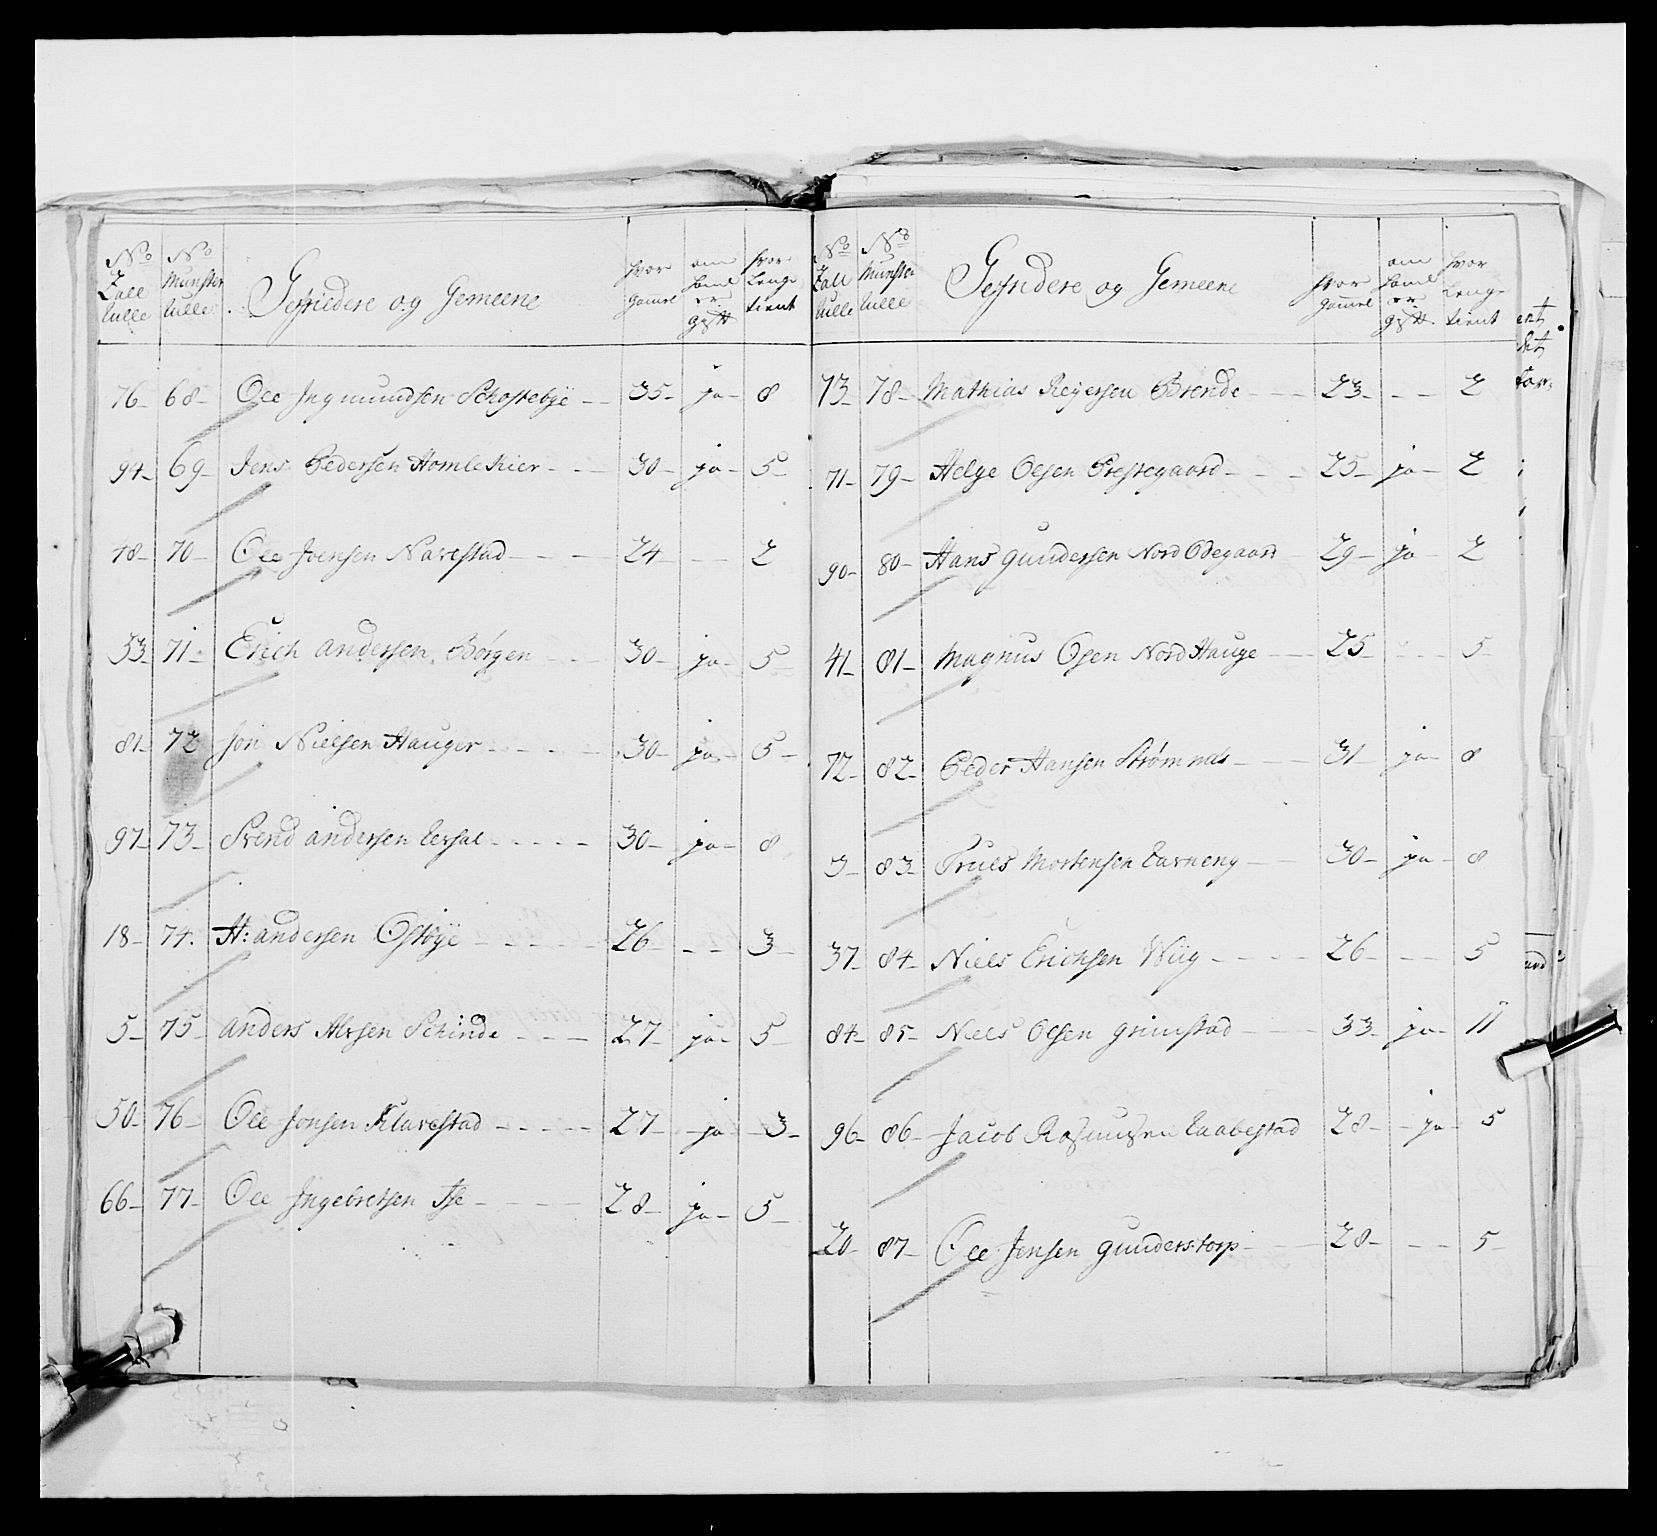 No Zall Rulle | No Munster Rulle | Gefriedere og Gemeene | hvor gamel | om hand er gift | hvor lenge tient
76 68 Ole Ingmundsen Schoftebye 35 ja 8
94 69 Jens Pedersen Homlekier 30 ja 5
48 70 Ole Joensen Navestad 24 - - 2
53 71 Erich andersen Børgen 30 ja 5
81 72 Jon Nielsen Hauger 30 ja 5
97 73 Svend andersen 30 ja 8
18 74. H: andersen Ostbye 26 - - 3
5 75 anders Schinde 27 ja 5
50 76 Ole Jonsen Klavestad 27 ja 3
66 77 Ole Ingebretsen 28 ja 5
No Zall Rulle | No Munster Rulle | Gefridere og Gemeene | hvor gamel | om hand er gift | hvor lenge tient
73 78 Mathias Reyersen Brende 23 - - 2
71 79 Helge Olsen Prestegaard 25 ja 2
90 80 Hans gundersen Nord Ødegaard 29 ja 2
41 81 Magnus Olsen Nord Hauge 25 - - 5
72 82 Peder Hansen Strømnes 31 ja 8
9 83 Truls Mortensen 30 ja 8
37 84 Niels Erichsen Wiig 26 - - 5
84 85 Niels Olsen grimstad 33 ja 11
96 86 Jacob Rasmusen Raabestad 28 ja 5
20 87 Ole Jensen gunderstorp 28 - - 5